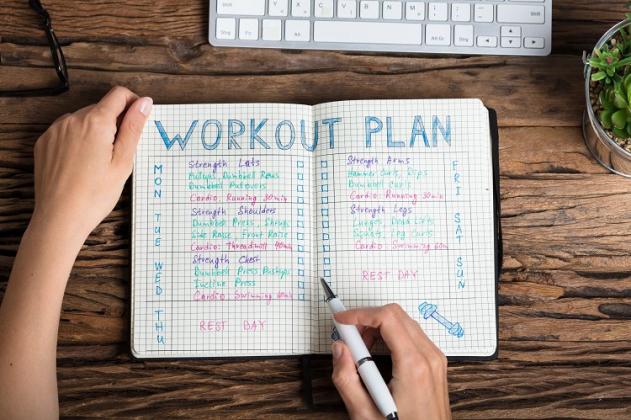 WORKOUT PLAN
MON
Strength Lats
Pullups, Dumbbell Rows
Dumbbell Pullovers
Cardio: Running 30min
TUE
Strength Shoulders
Dumbbell Press, Shrugs
Side Raise, Front Raise
Cardio: Threadmill 40min
WED
Strength Chest
Dumbbell Press Pushups
Incline Press
Cardio: Swimming 60min
THU
REST DAY
FRI
Strength Arms
Hammer Curls, Dips
Dumbbell Curl
Cardio: Running 30min
SAT
Strength Legs
Lunges Dead Lifts
Squats, Leg Curls
Cardio: Swimming 60m
SUN
REST DAY